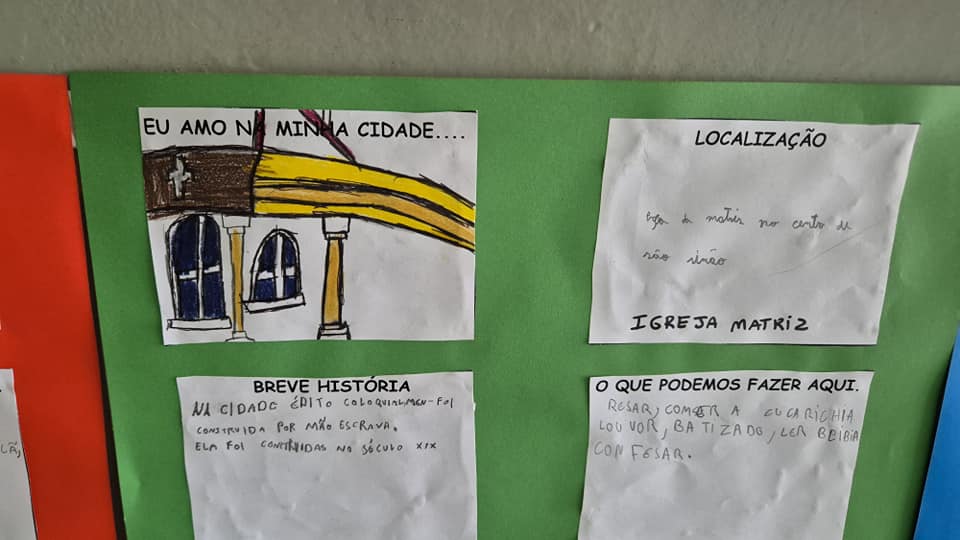 EU AMO NA MINHA CIDADE....
LOCALIZAÇÃO
da matris no centro de
são simão
IGREJA MATRIZ
BREVE HISTÓRIA
NA CIDADE É DITO COLOQUIALMEN-FOI
CONSTRUIDA POR MÃO ESCRAVA.
ELA FOI CONTINIDAS NO SÓCULO XIX
O QUE PODEMOS FAZER AQUI.
RESAR, COMSER A EUCARICHIA
LOUVOR, BATIZADO, LER BEIBIA
CONFESAR.
LÃ,